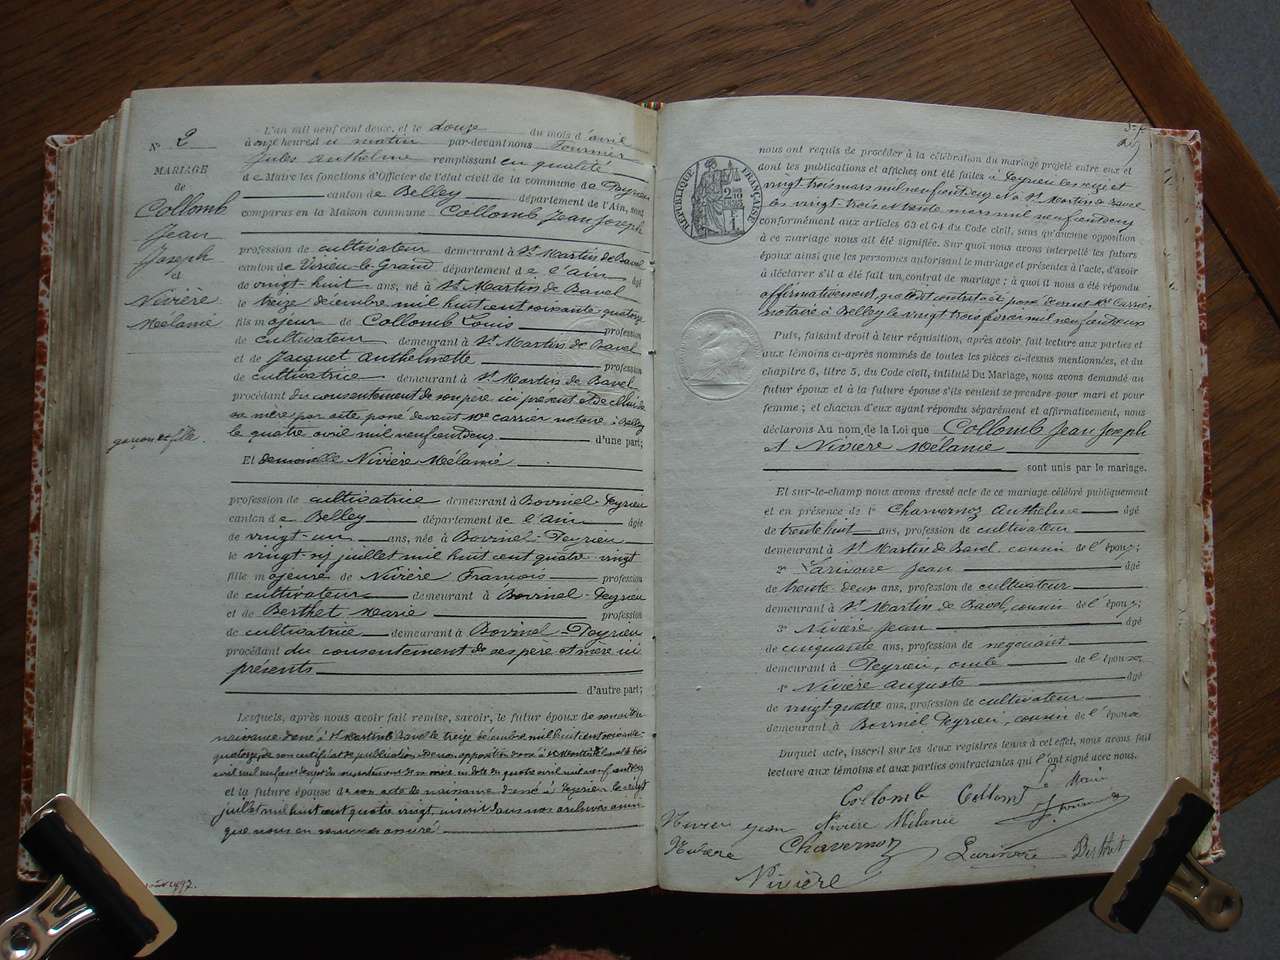 N° 2
MARIAGE
de
Collomb
Jean
Joseph
et
Nivière
Mélanie
garçon et fille.
L'an mil neuf cent deux, et le douze du mois d'avril
à onze heures du matin par-devant nous Fournier
Jules Anthelme remplissant en qualité
de Maire les fonctions d'Officier de l'état civil de la commune de Peyrieu
canton de Belley département de l'Ain, sont
comparus en la Maison commune Collomb Jean Joseph
profession de cultivateur demeurant à St Martin de Bavel
canton de Virieu-le-Grand département de l'Ain âgé
de vingt-huit ans, né à St Martin de Bavel
le treize décembre mil huit cent soixante quatorze
fils majeur de Collomb Louis profession
de cultivateur demeurant à St Martin de Bavel
et de Jacquet Anthelmette profession
de cultivatrice demeurant à St Martin de Bavel
procédant du consentement de son père ici présent et de celui de
sa mère par acte passé devant Me Carrier notaire à Belley
le quatre avril mil neuf cent deux d'une part;
Et demoiselle Nivière Mélanie
profession de cultivatrice demeurant à Bovinel-Peyrieu
canton de Belley département de l'Ain âgée
de vingt-un ans, née à Bovinel-Peyrieu
le vingt juillet mil huit cent quatre-vingt
fille majeure de Nivière François profession
de cultivateur demeurant à Bovinel-Peyrieu
et de Berthet Marie profession
de cultivatrice demeurant à Bovinel-Peyrieu
procédant du consentement de ses père et mère ici
présents
d'autre part;
Lesquels, après nous avoir fait remise, savoir, le futur époux de son acte de
naissance dressé à St Martin de Bavel le treize décembre mil huit cent soixante
quatorze, de son certificat de publication et de non opposition dressé à St Martin de Bavel le trois
avril mil neuf cent deux et du consentement de sa mère en date du quatre avril mil neuf cent deux
et la future épouse de son acte de naissance dressé à Peyrieu le vingt
juillet mil huit cent quatre vingt, inscrit dans nos archives ainsi
que nous en sommes assuré
RÉPUBLIQUE FRANÇAISE
nous ont requis de procéder à la célébration du mariage projeté entre eux et
dont les publications et affiches ont été faites à Peyrieu les seize et
vingt trois mars mil neuf cent deux et à St Martin de Bavel
les vingt trois et trente mars mil neuf cent deux
conformément aux articles 63 et 64 du Code civil, sans qu'aucune opposition
à ce mariage nous ait été signifiée. Sur quoi nous avons interpellé les futurs
époux ainsi que les personnes autorisant le mariage et présentes à l'acte, d'avoir
à déclarer s'il a été fait un contrat de mariage; à quoi il nous a été répondu
affirmativement, que ledit contrat a été passé devant Me Carrier
notaire à Belley le vingt trois février mil neuf cent deux
Puis, faisant droit à leur réquisition, après avoir fait lecture aux parties et
aux témoins ci-après nommés de toutes les pièces ci-dessus mentionnées, et du
chapitre 6, titre 5, du Code civil, intitulé Du Mariage, nous avons demandé au
futur époux et à la future épouse s'ils veulent se prendre pour mari et pour
femme; et chacun d'eux ayant répondu séparément et affirmativement, nous
déclarons Au nom de la Loi que Collomb Jean Joseph
et Nivière Mélanie
sont unis par le mariage.
Et sur-le-champ nous avons dressé acte de ce mariage célébré publiquement
et en présence de 1° Charvernoz Anthelme âgé
de trente huit ans, profession de cultivateur
demeurant à St Martin de Bavel, cousin de l'époux;
2° Larivoire Jean âgé
de trente-deux ans, profession de cultivateur
demeurant à St Martin de Bavel, cousin de l'époux;
3° Nivière Jean âgé
de cinquante ans, profession de négociant
demeurant à Peyrieu, oncle de l'épouse;
4° Nivière Auguste âgé
de vingt-quatre ans, profession de cultivateur
demeurant à Bovinel Peyrieu, cousin de l'épouse
Duquel acte, inscrit sur les deux registres tenus à cet effet, nous avons fait
lecture aux témoins et aux parties contractantes qui l'ont signé avec nous.
Le Maire
Collomb Collomb J. Fournier
Nivier Jean Nivière Mélanie
Nivière Chavernoz Larivoire Berthet
Nivière